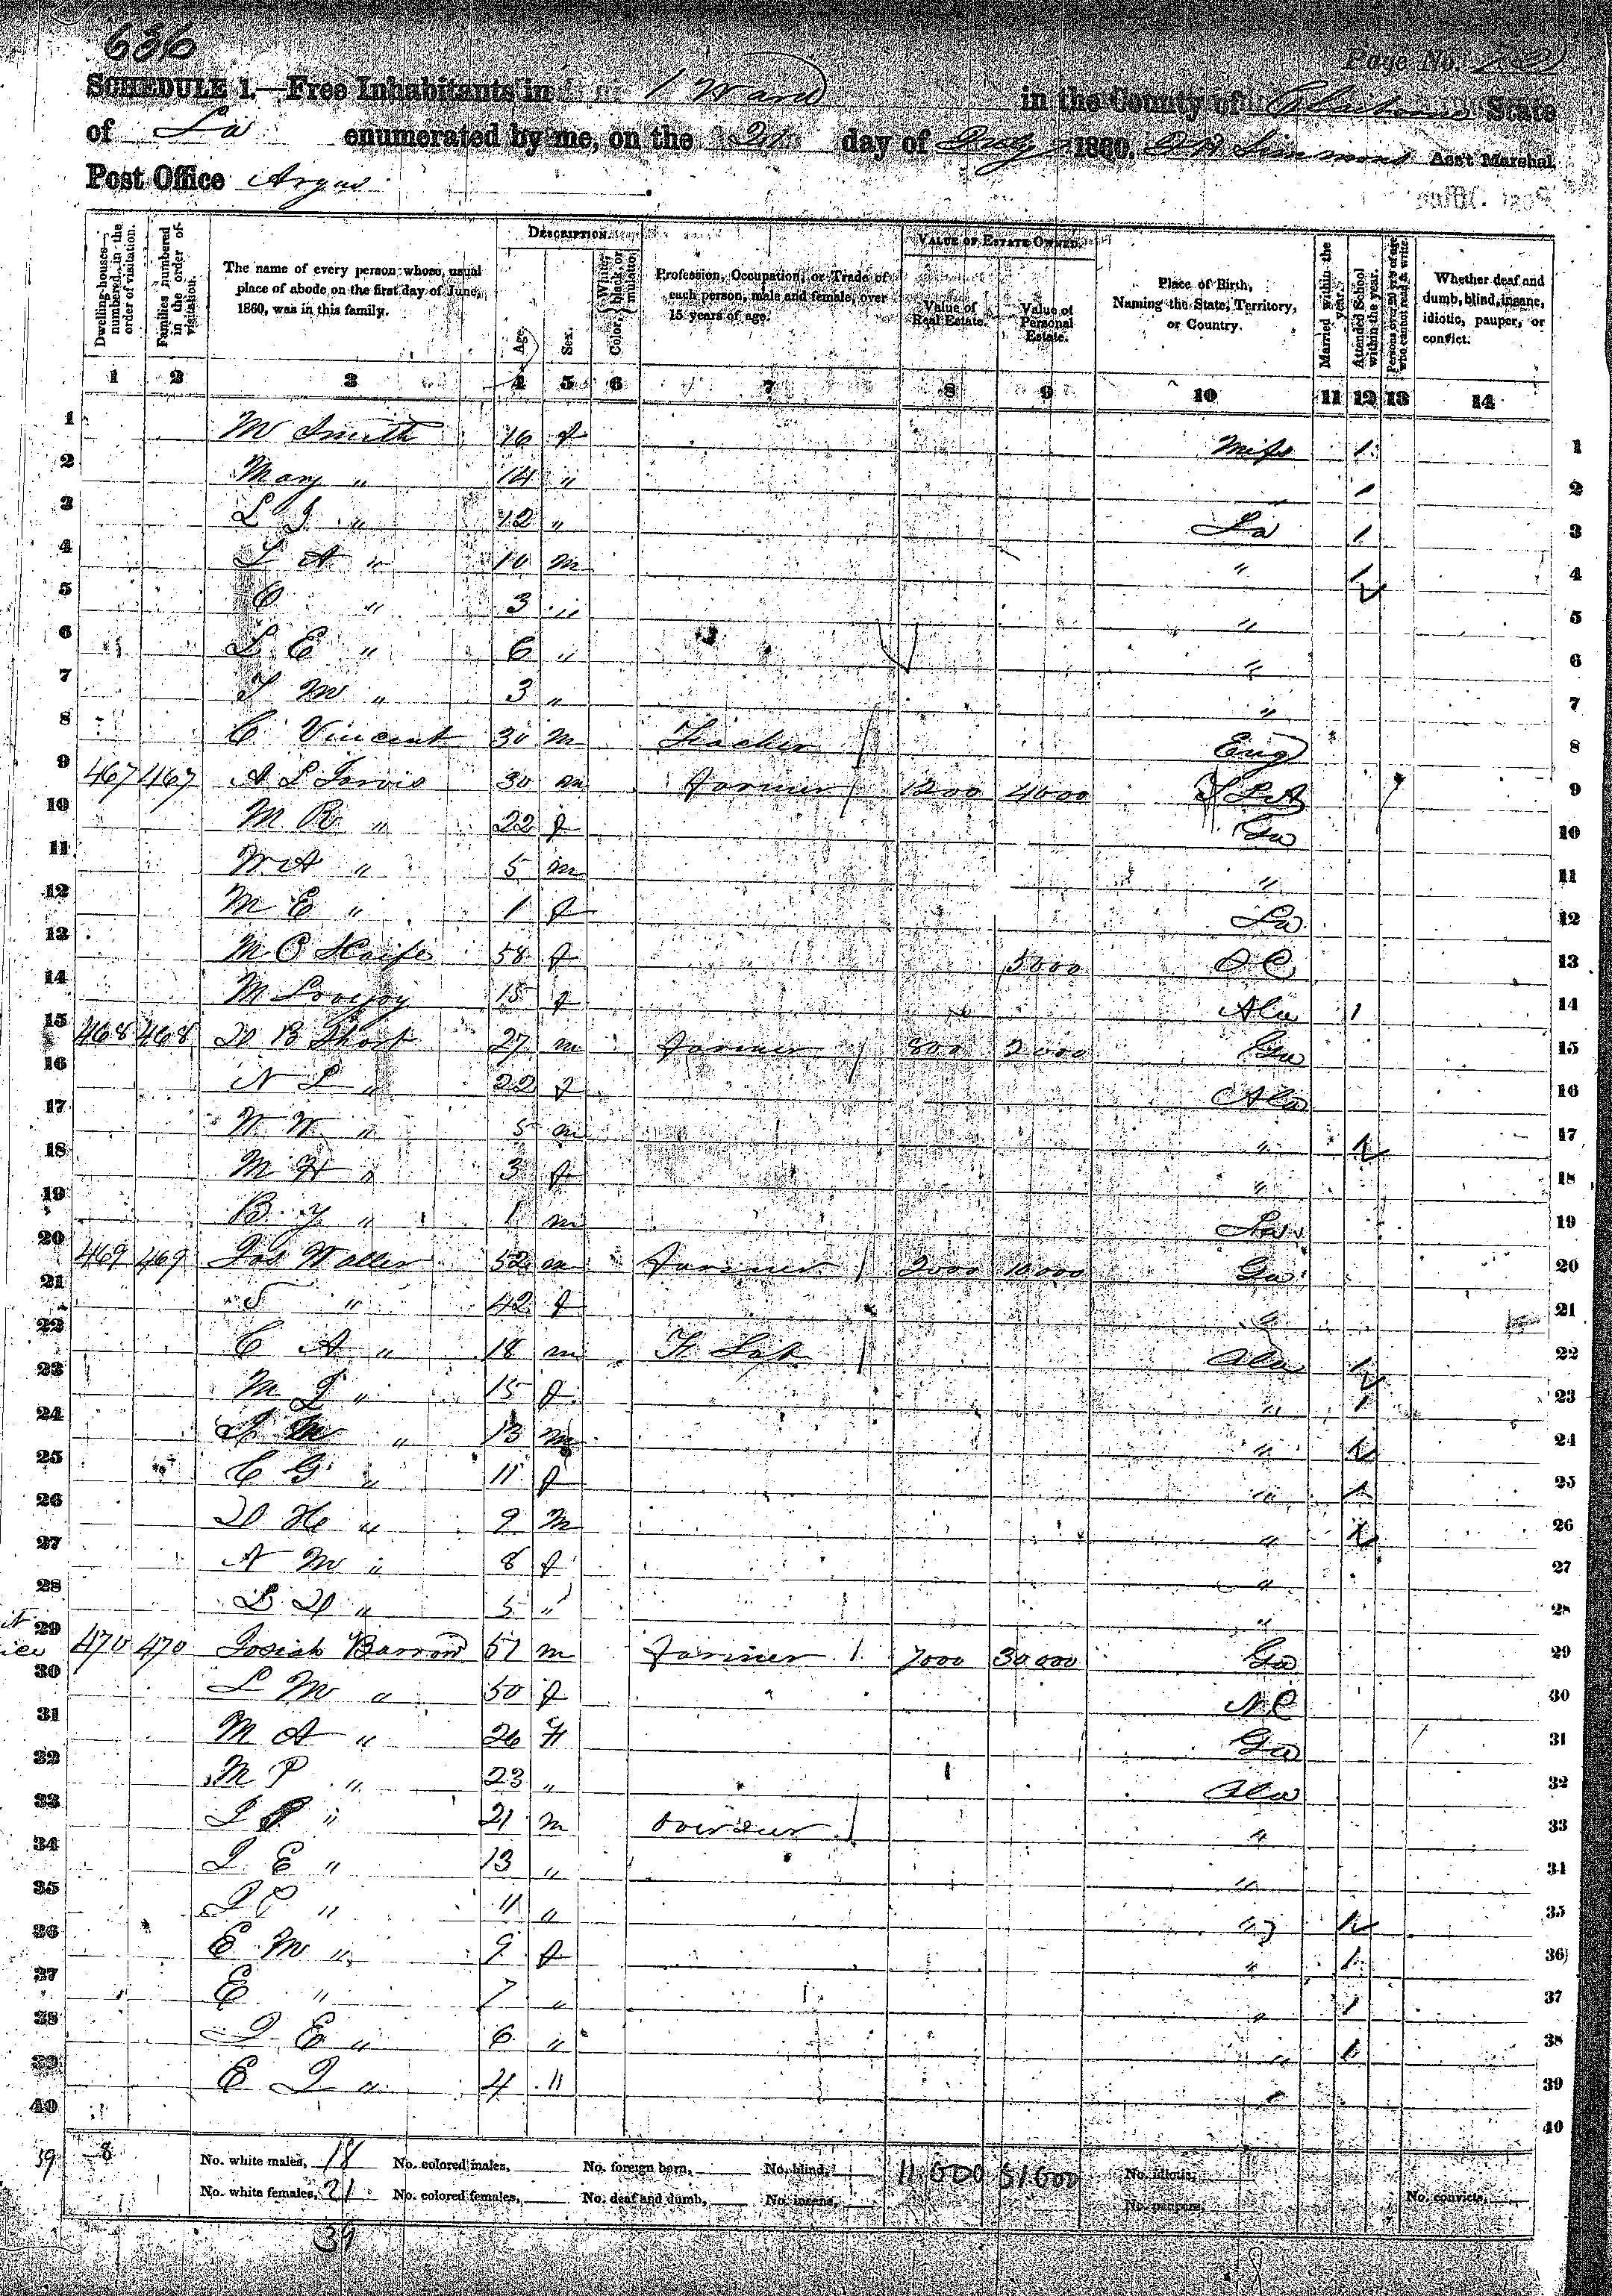 636
Page No.
SCHEDULE 1.—Free Inhabitants in 1 Ward in the County of Claiborne State
of La enumerated by me, on the day of July 1860. Simmons Ass't Marshal
Post Office Argus
Dwelling-houses—numbered in the order of visitation.
Families numbered in the order of visitation.
The name of every person whose usual place of abode on the first day of June, 1860, was in this family.
DESCRIPTION.
Age.
Sex.
Color, White, black, or mulatto.
Profession, Occupation, or Trade of each person, male and female, over 15 years of age.
VALUE OF ESTATE OWNED.
Value of Real Estate.
Value of Personal Estate.
Place of Birth, Naming the State, Territory, or Country.
Married within the year.
Attended School within the year.
Persons over 20 y'rs of age who cannot read & write.
Whether deaf and dumb, blind, insane, idiotic, pauper, or convict.
1 2 3 4 5 6 7 8 9 10 11 12 13 14
1 M Smith 16 f Miss 1 1
2 Mary " 14 " 1 2
3 L J " 12 " La 1 3
4 L A " 10 m " 1 4
5 C " 3 " " 5
6 L E " 6 " " 6
7 J M " 3 " " 7
8 C Vincent 30 m Teacher / Eng 8
9 467 467 A L Jarvis 30 m Farmer / 1200 4000 9
10 M R " 22 f Ga 10
11 W A " 5 m " 11
12 M E " 1 f La 12
13 M C 58 f 5000 S C 13
14 M Lovejoy 15 f Ala 1 14
15 468 468 D B Short 27 m Farmer / 800 2000 Ga 15
16 N L " 22 f Ala 16
17 W W " 5 m " 1 17
18 M H " 3 f " 18
19 B Y " 1 m La 19
20 469 469 Jos Waller 52 m Farmer / 3000 10000 Ga 20
21 S " 42 f " 21
22 C A " 18 m / Ala 1 22
23 M J " 15 f " 1 23
24 J M " 13 m " 1 24
25 C G " 11 f " 1 25
26 D H " 9 M " 1 26
27 A M " 8 f " 27
28 L D " 5 " " 28
29 470 470 Josiah Barrow 51 m Farmer / 7000 30000 Ga 29
30 L M " 50 f N C 30
31 M A " 26 F Ga 31
32 M P " 23 " Ala 32
33 J P " 21 m Overseer / " 33
34 J E " 13 " " 34
35 J C " 11 " " 1 35
36 E M " 9 f " 1 36
37 E " 7 " " 1 37
38 J E " 6 " " 1 38
39 E J " 4 " " 39
40 40
39 8 No. white males, 18 No. colored males, No. foreign born, No. blind, No. idiotic,
No. white females, 21 No. colored females, No. deaf and dumb, No. insane, No. paupers, No. convicts,
39